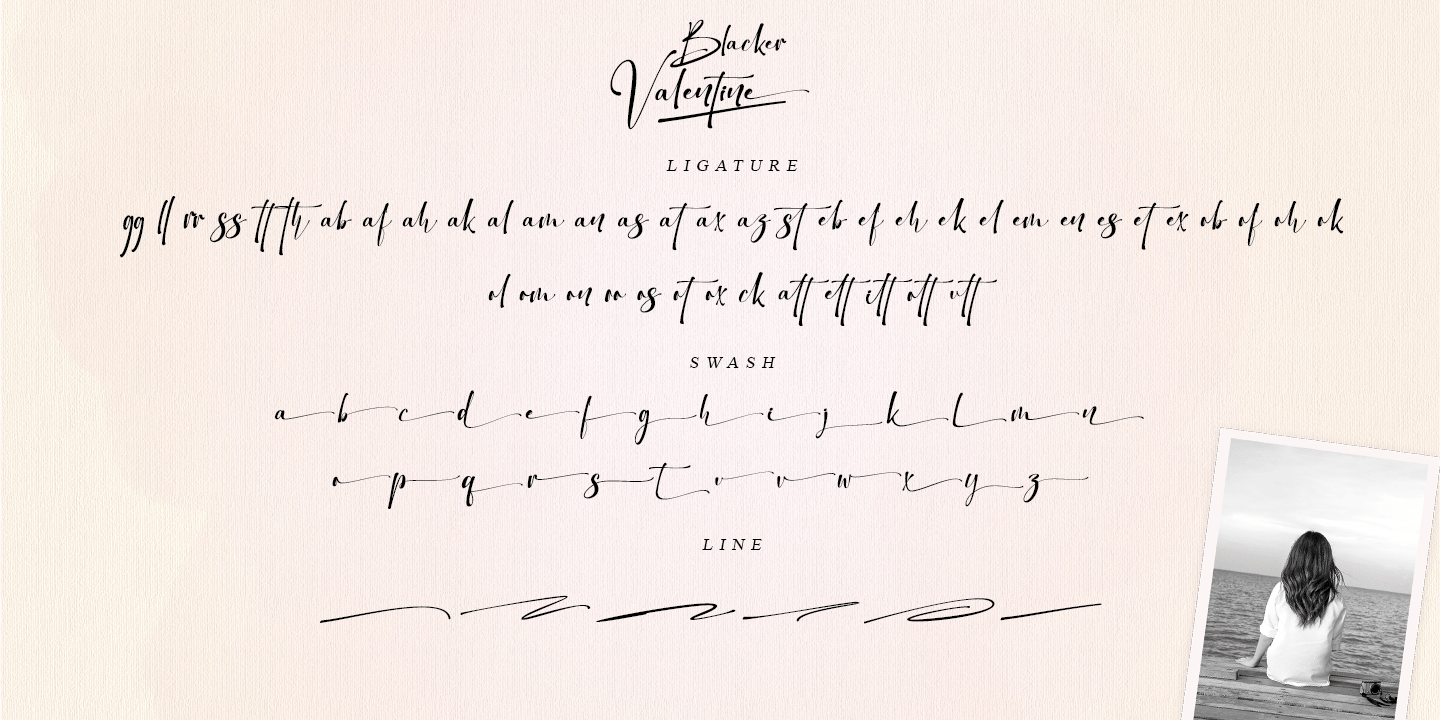 Blacker
Valentine
LIGATURE
gg ll rr ss tt th ab af ah ak al am an as at ax az st eb ef eh ek el em en es et ex ob of oh ok
ol om on oo os ot ox ck att ett itt ott utt
SWASH
a b c d e f g h i j k l m n
o p q r s t u v w x y z
LINE